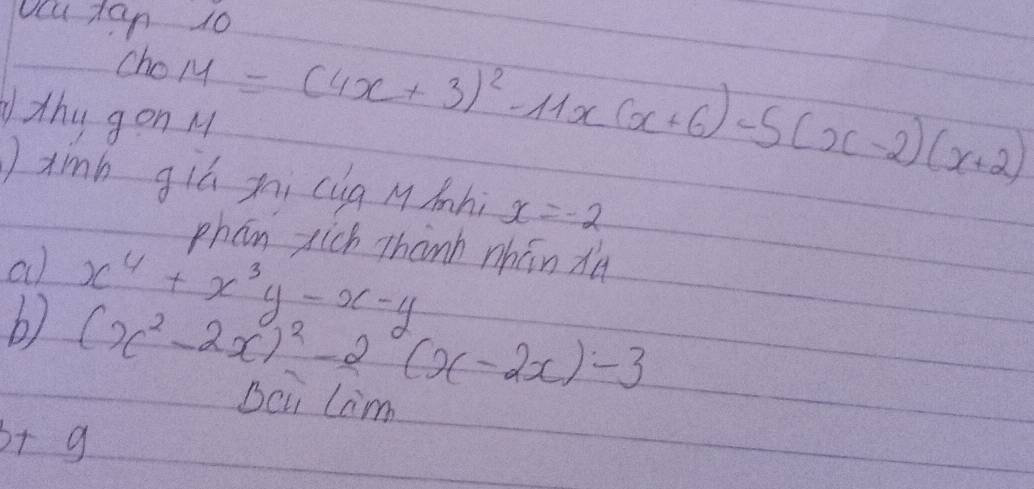 Bài tập 10
Cho M = (4x + 3)² - 11x(x+6) - 5(x-2)(x+2)
) thu gọn M
) tính giá trị của M khi x = -2
phân tích thành nhân tử
a) x⁴ + x³y - x - y
b) (x² - 2x)² - 2 (x - 2x) - 3
Bài làm
+ 9